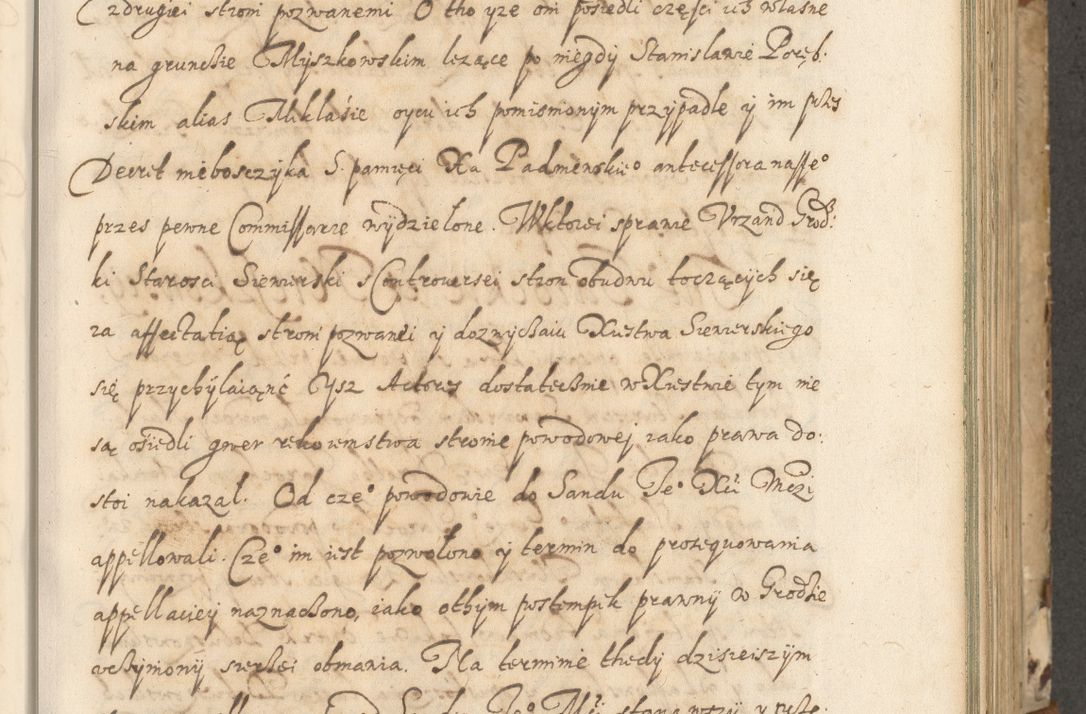 z drugiei stroni pozwanemi O tho yze oni posiedli części ich własne
na grunckie Myszkowskim lezące po niegdy Stanisławie Poręb:
skim alias Miklasie oycu ich pomienionym przypadłe y im przes
Decret nieboszczyka S. pamięci Xa Padniewskieo antecessora nasseo
przes pewne Commissarze wydzielone. Wktorei sprawie Vrzand Grodz:
ki Starosci Siewierski s Controuersei stron obudwu toczących się
za affectatią stroni pozwanei y dozwyczaiu Xiestwa Siewierskiego
się przychylaiąnć Ysz Actores dostatecznie w Xiestwie tym nie
są osiedli gwer rekoiemstwa stronie powodowej iako prawa do:
stoi nakazał. Od czeo powodowie do Sandu Jeo Xei Mczi
appellowali. Czeo im iest pozwolono y termin do prosequowania
appellaciey naznaczono, iako othym postempek prawny w Grodzie
uczyniony szerzei obmawia. Na terminie thedy dzisieiszym